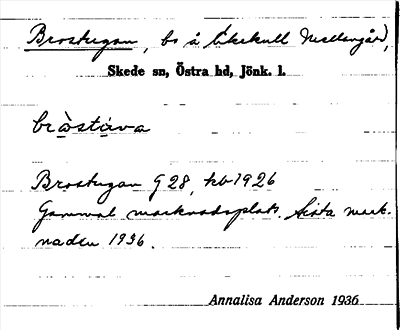 Brostugan, bs å Ekekull Mellangård,
Skede sn, Östra hd, Jönk. l.
bròstúva
Brostugan G 28, kb 1926
Gammal marknadsplats. Sista mark-
naden 1936.
Annalisa Anderson 1936